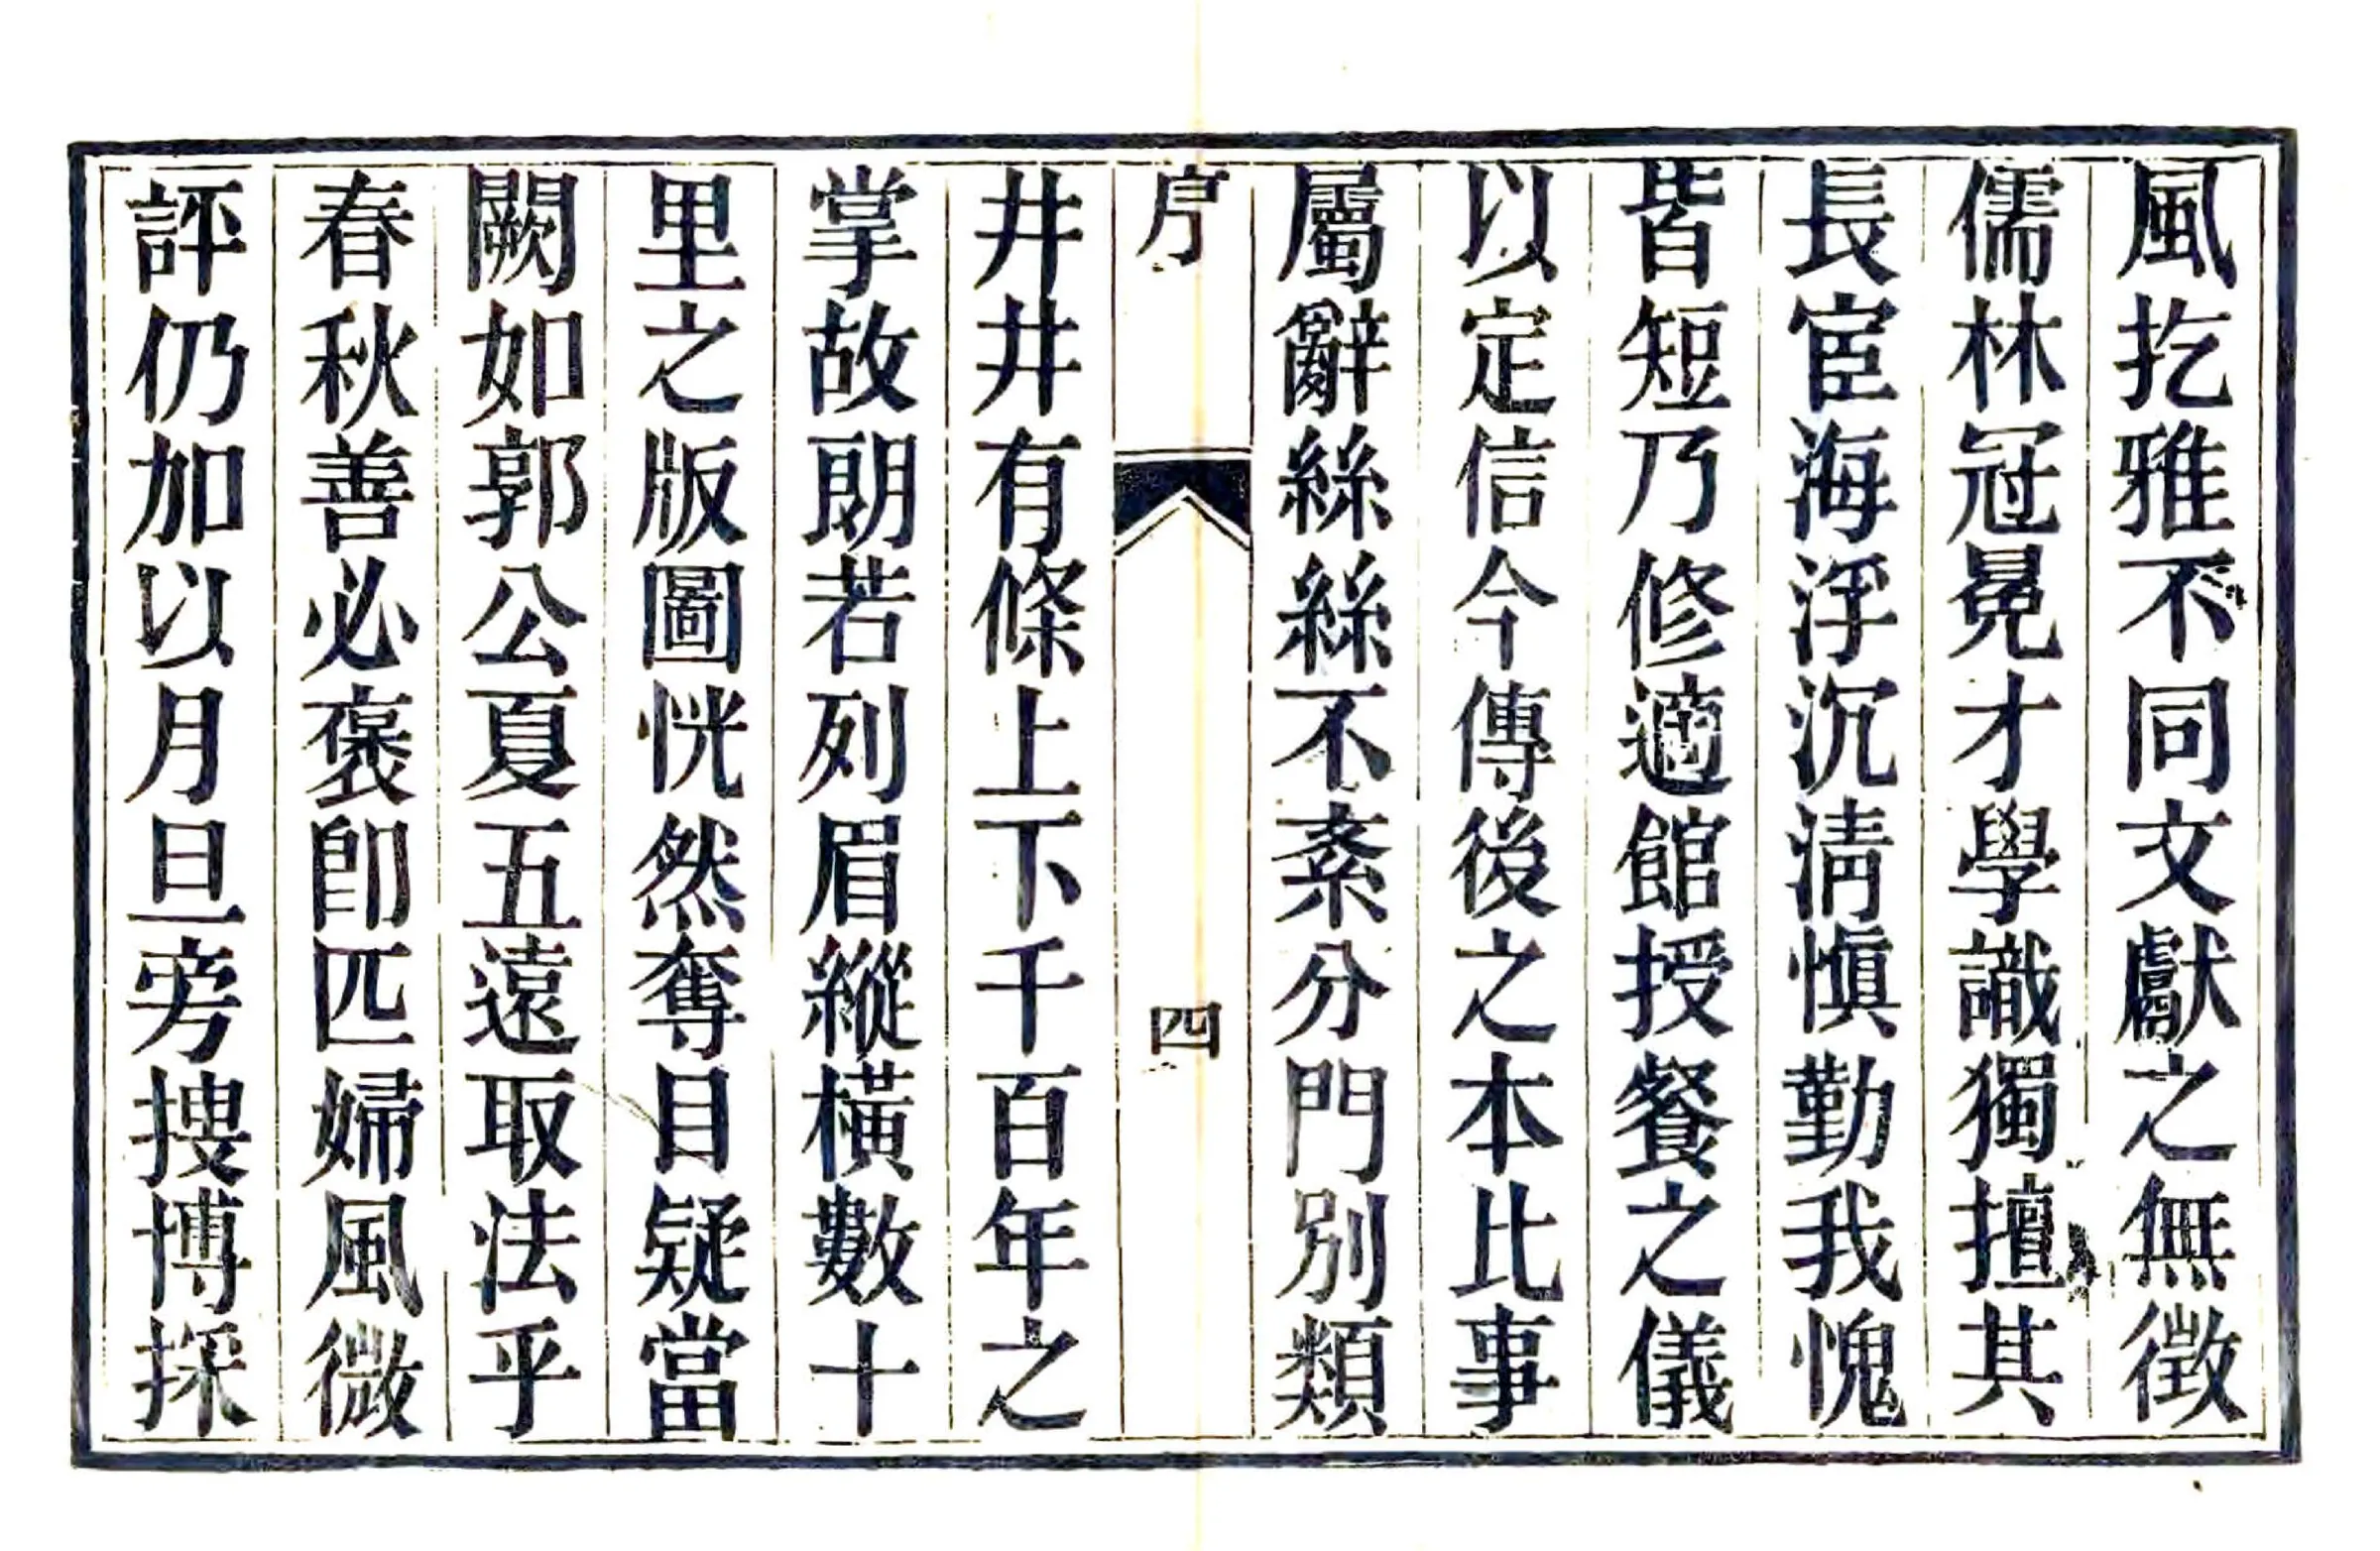 風扢雅不同文獻之無徵
儒林冠冕才學識獨擅其
長宦海浮沉清慎勤我愧
皆短乃修適館授餐之儀
以定信今傳後之本比事
屬辭絲絲不紊分門別類
序 四
井井有條上下千百年之
掌故朗若列眉縱橫數十
里之版圖恍然奪目疑當
闕如郭公夏五遠取法乎
春秋善必褒卽匹婦風微
評仍加以月旦旁搜博採